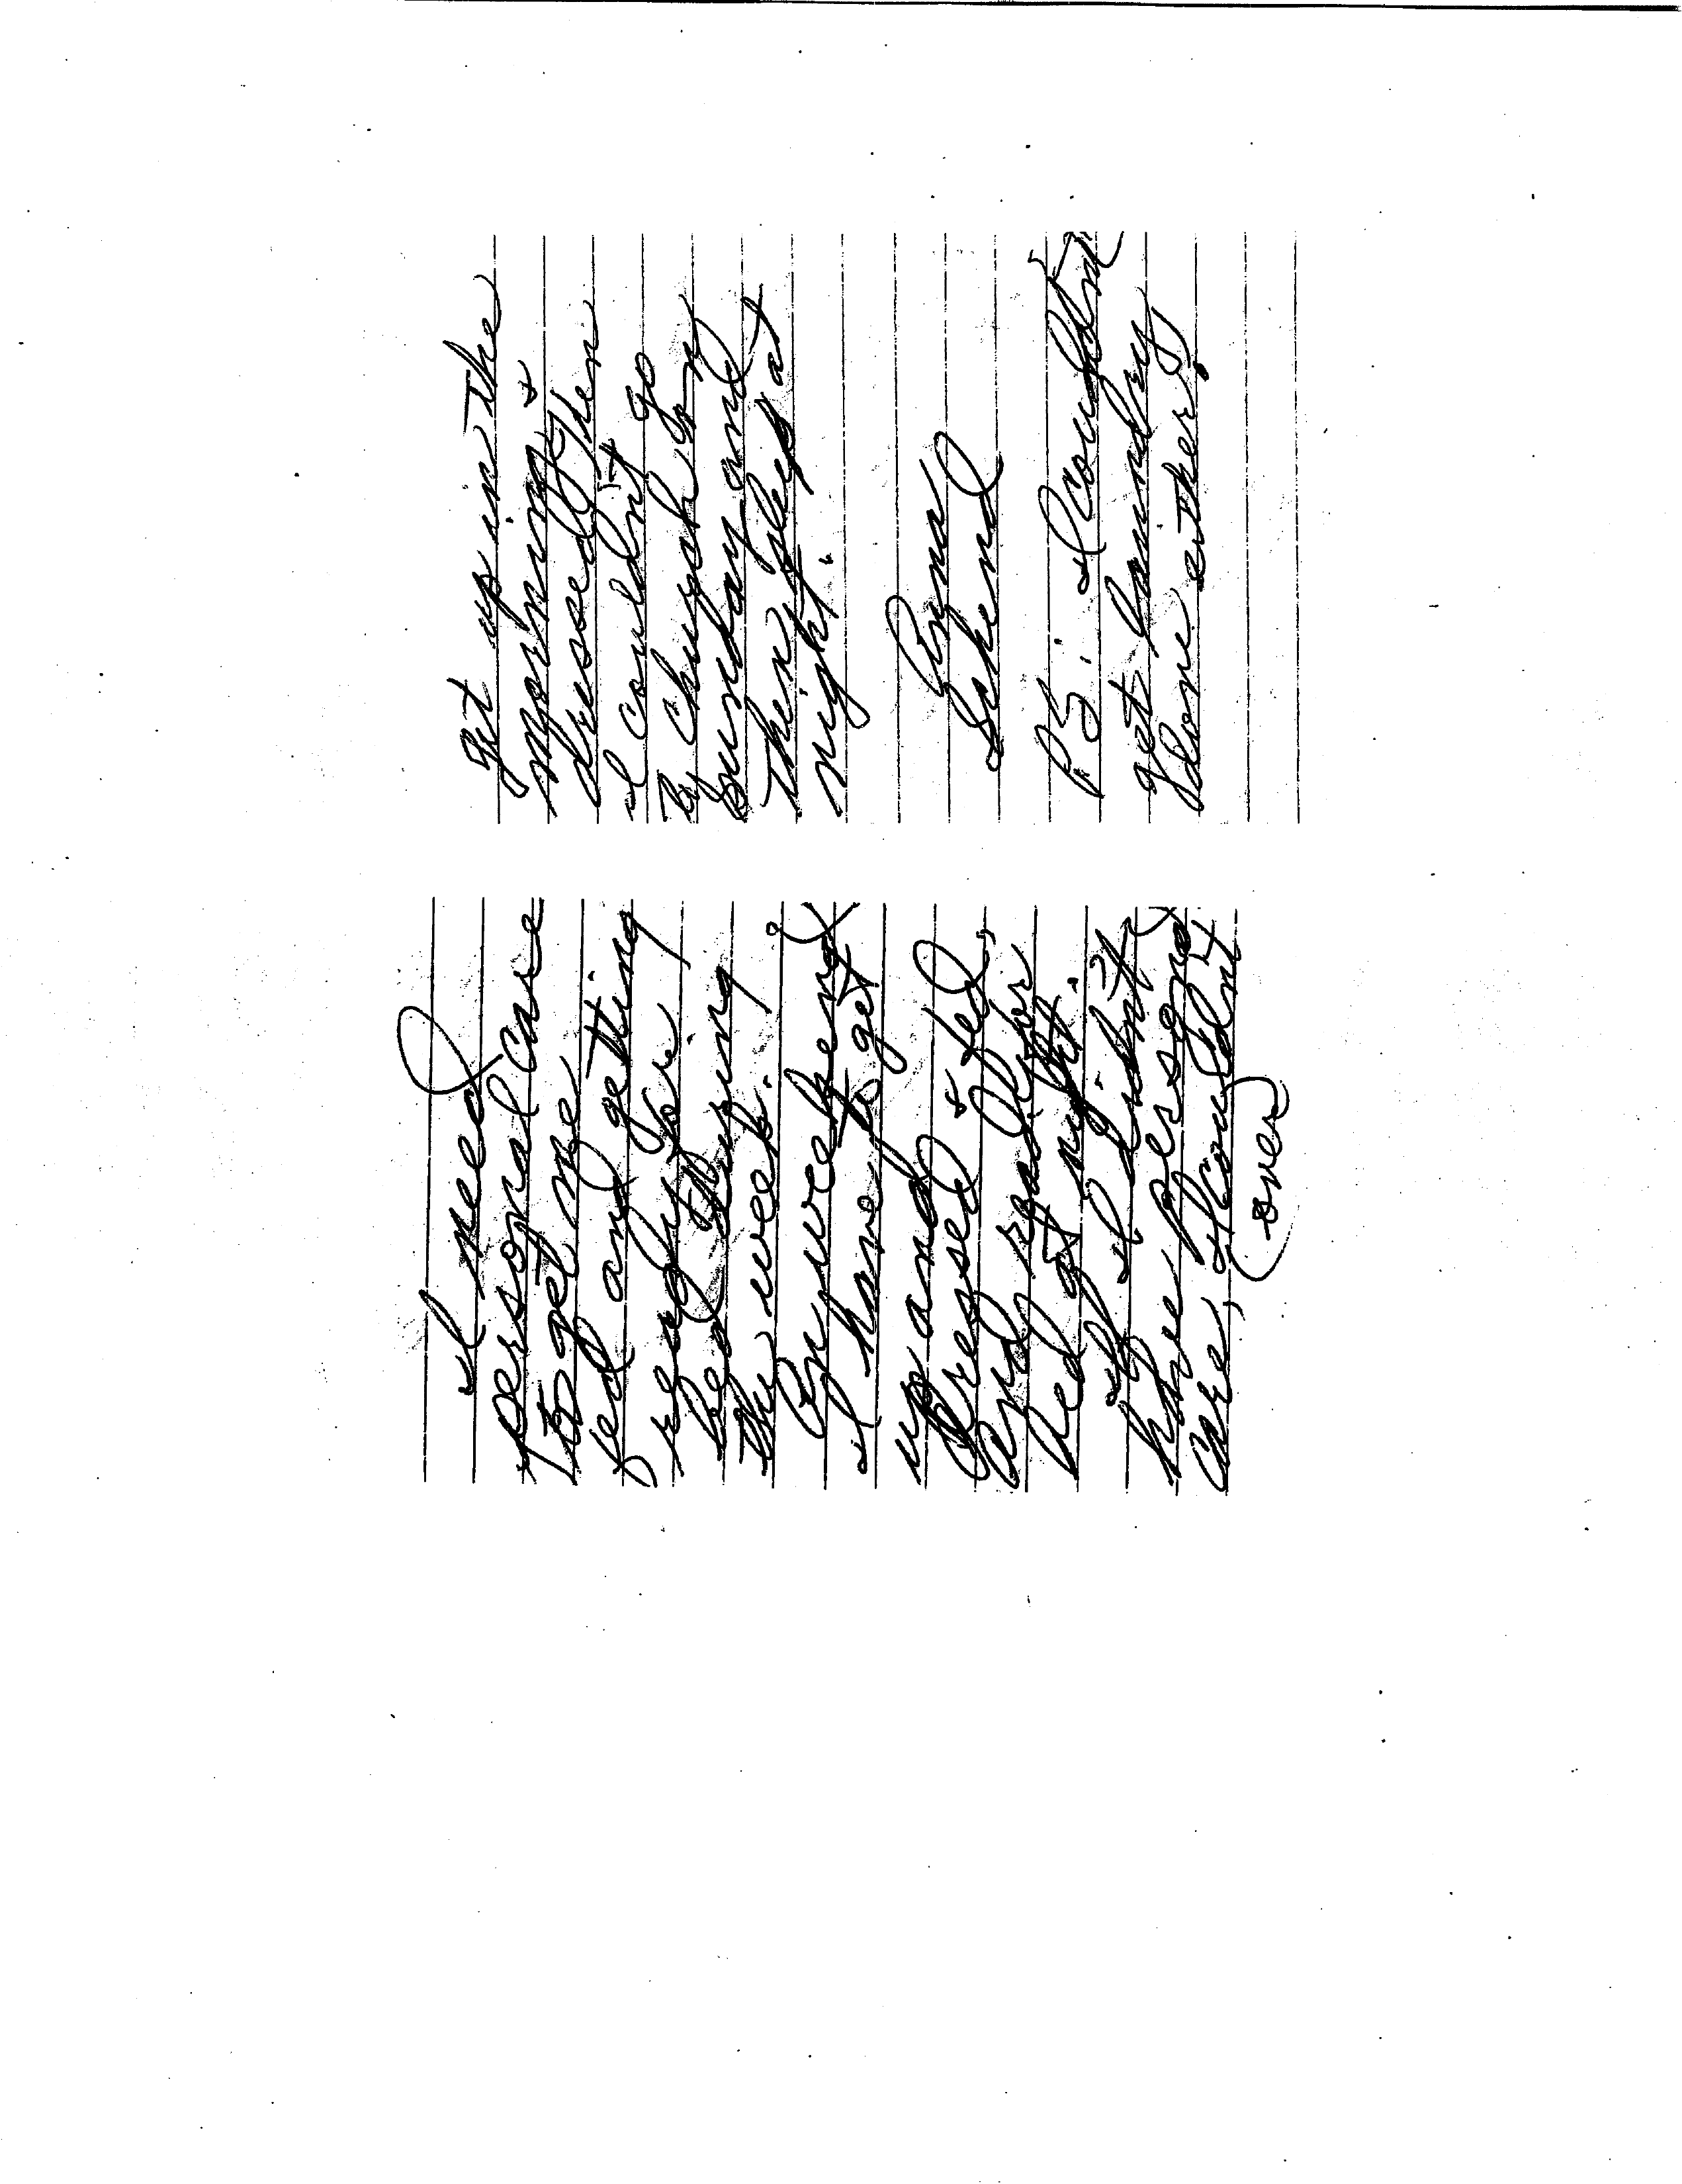 I need
personal care
to get me
fed and getting
ready for
bed during
the week.
On weekend
I have to get
up and
dressed & fed,
and ready for
bed at night.
If I didn't
have personal
care, I couldn't
(over)
get up in the
morning &
dressed then
I couldn't go
to church on
Sunday and
then sleep at
night.
Schend
P.S. I couldn't
get laundry
done either.